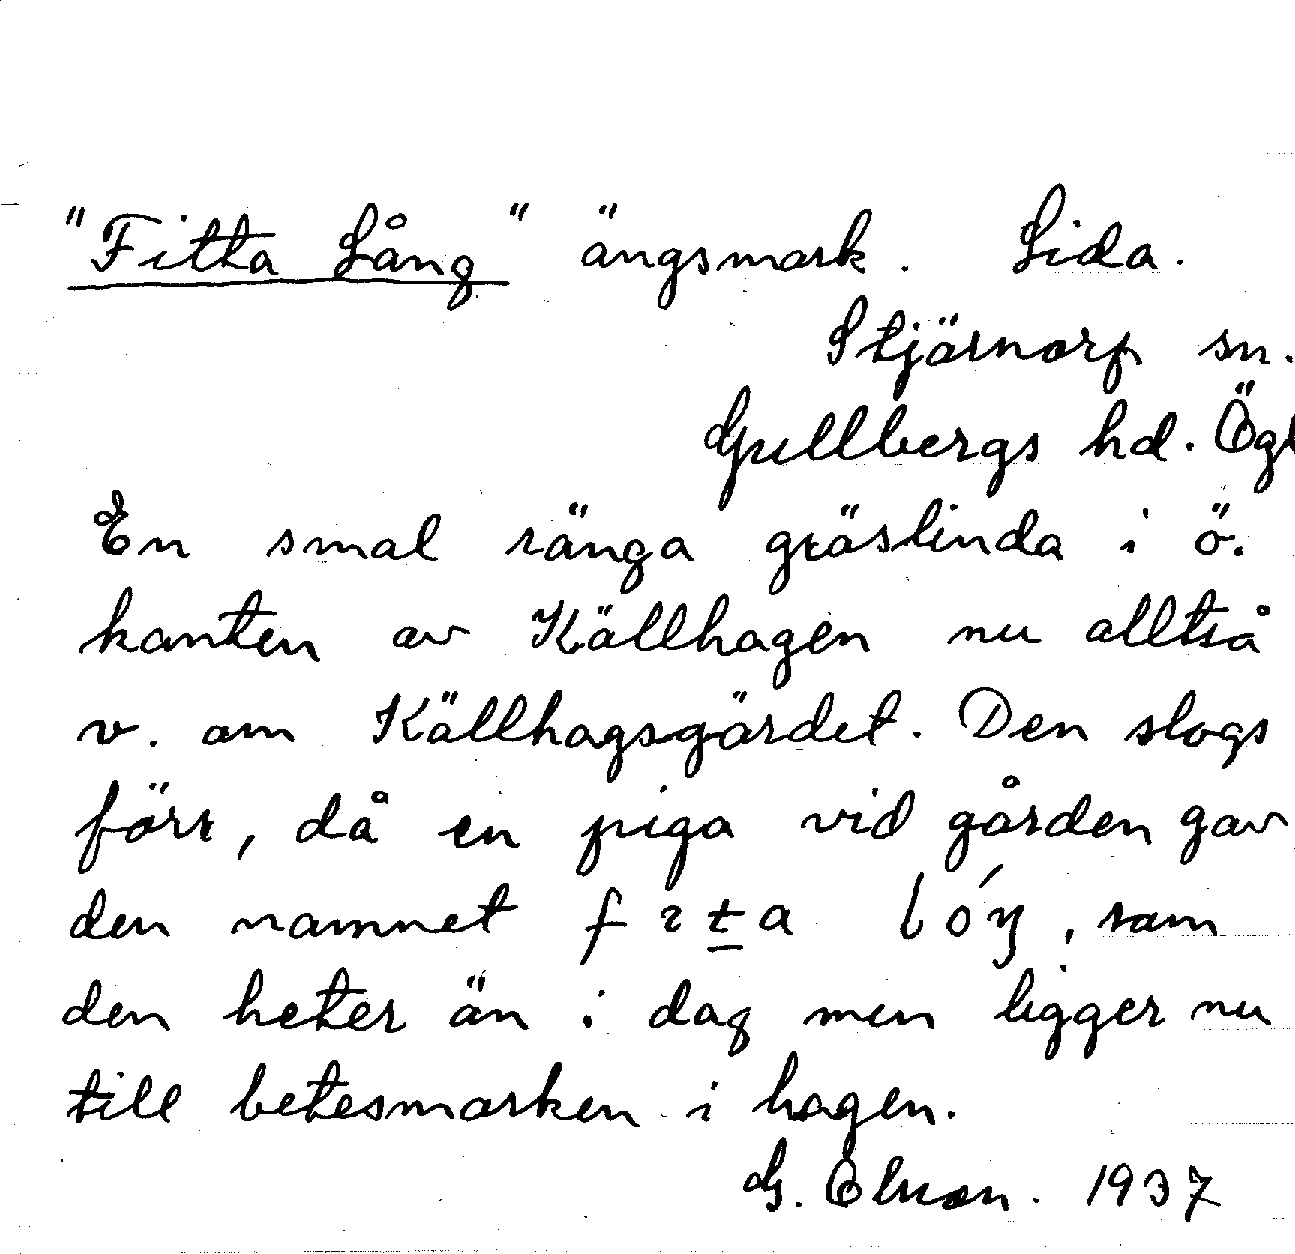 "Fitta Lång" ängsmark. Lida.
Stjärnorp sn.
Gullbergs hd. Ögl
En smal ränga gräslinda i ö.
kanten av Källhagen nu alltså
v. om Källhagsgärdet. Den slogs
förr, då en piga vid gården gav
den namnet fıṯa lóŋ, som
den heter än i dag men ligger nu
till betesmarken i hagen.
G. 1937